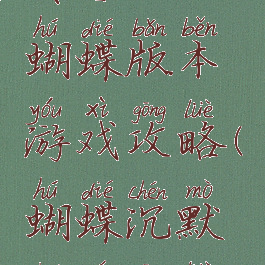 hú dié bǎn běn
蝴蝶版本
yóu xì gōng lüè
游戏攻略(
hú dié chén mò
蝴蝶沉默